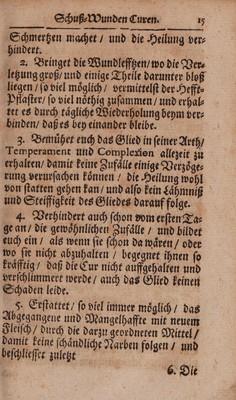 Schuß-Wunden Curen. 15
Schmertzen machet / und die Heilung ver-
hindert.
2. Bringet die Wundlefftzen / wo die Ver-
letzung groß / und einige Theile darunter bloß
liegen / so viel möglich / vermittelst der Hefft-
Pflaster / so viel nöthig zusammen / und erhal-
tet es durch tägliche Wiederholung beym ver-
binden / daß es bey einander bleibe.
3. Bemühet euch das Glied in seiner Arth /
Temperament und Complexion allezeit zu
erhalten / damit keine Zufälle einige Verzöge-
rung verursachen können / die Heilung wohl
von statten gehen kan / und also kein Lähmniß
und Steiffigkeit des Gliedes darauf folge.
4. Verhindert auch schon vom ersten Ta-
ge an / die gewöhnlichen Zufälle / und bildet
euch ein / als wenn sie schon da wären / oder
wo sie nicht abzuhalten / begegnet ihnen so
kräfftig / daß die Cur nicht auffgehalten und
verschlimmert werde / auch das Glied keinen
Schaden leide.
5. Erstattet / so viel immer möglich / das
Abgegangene und Mangelhaffte mit neuem
Fleisch / durch die darzu geordneten Mittel /
damit keine schändliche Narben folgen / und
beschliesset zuletzt
6. Die